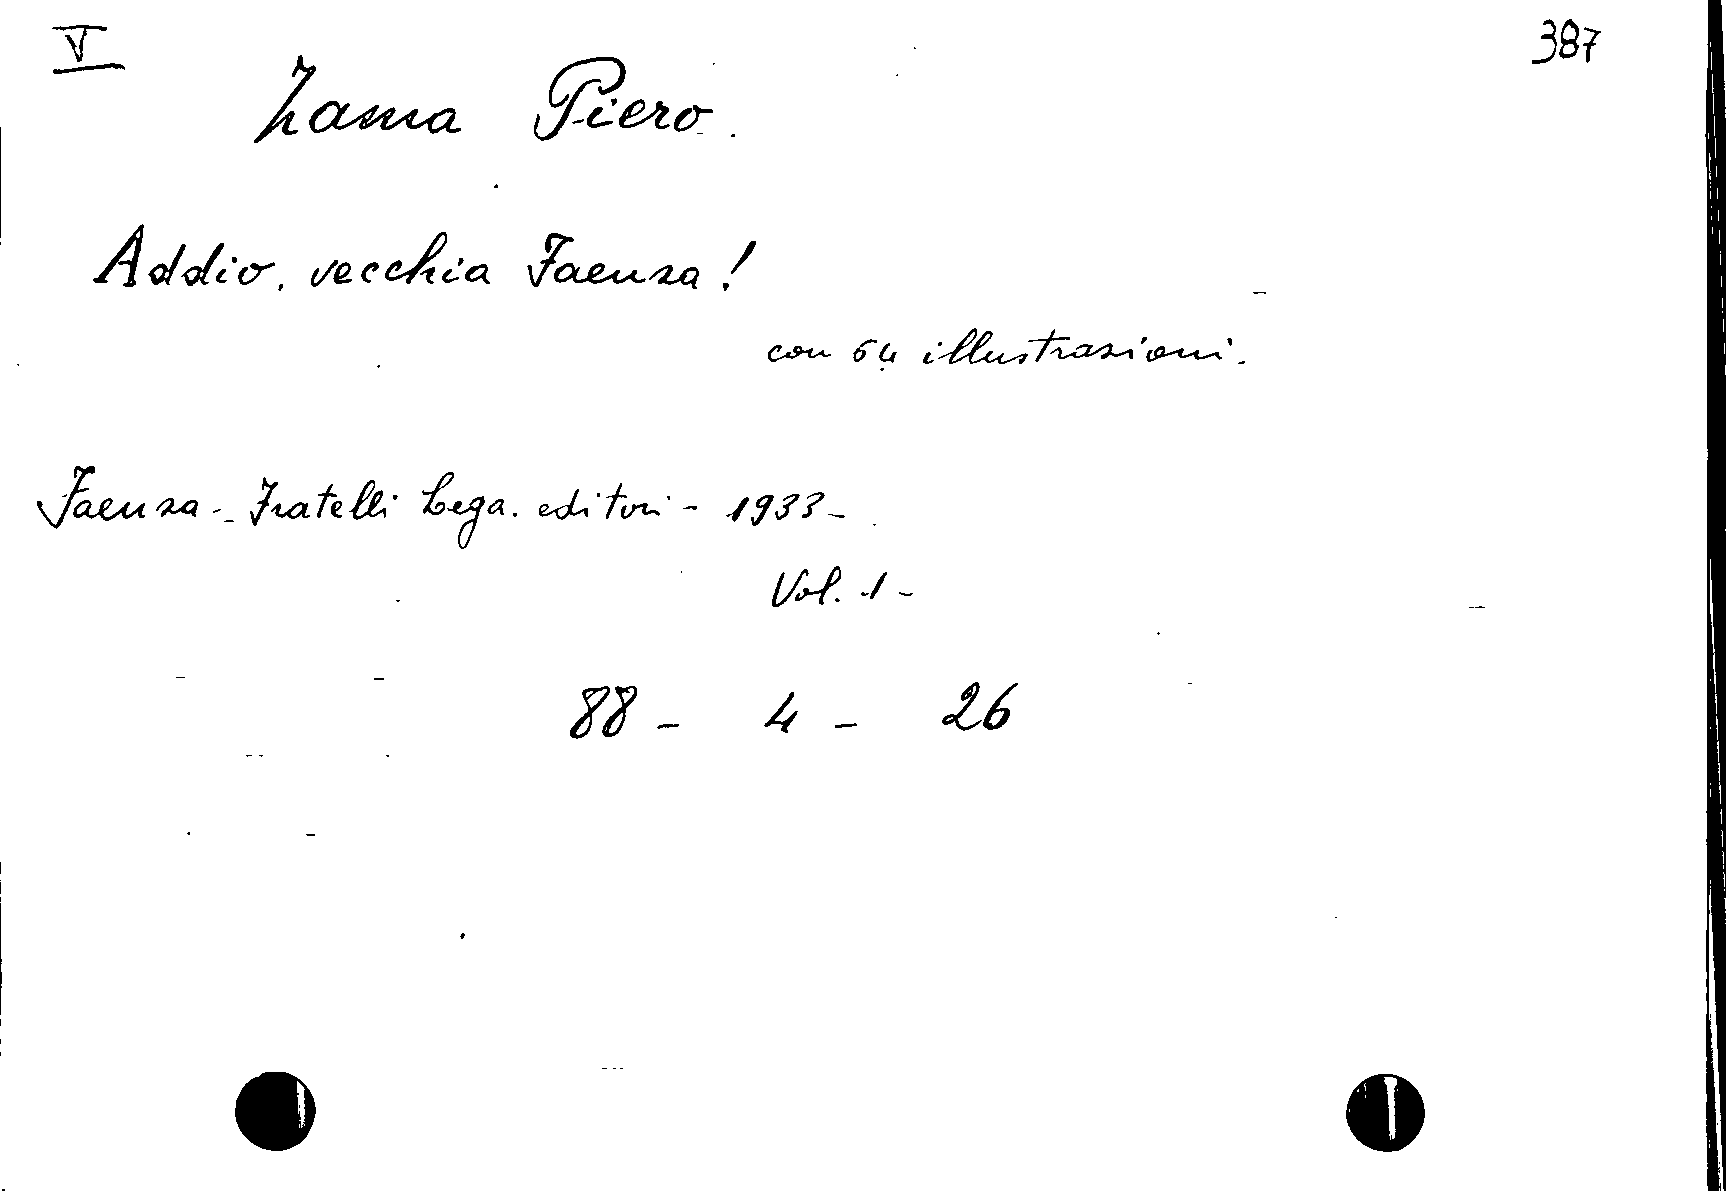 V 387
Zama Piero.
Addio, vecchia Faenza!
con 64 illustrazioni.
Faenza - Fratelli Lega. editori - 1933 -
Vol. 1 -
88 - 4 - 26